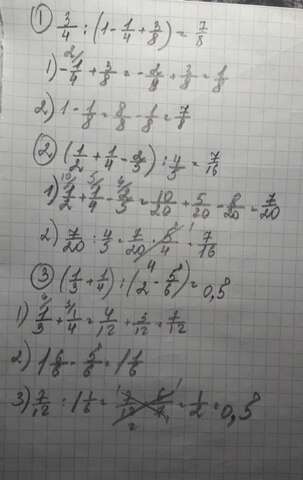 ① 3/4 : (1 - 1/4 + 3/8) = 7/8
1) - 1/4 + 3/8 = - 2/8 + 3/8 = 1/8
2) 1 - 1/8 = 8/8 - 1/8 = 7/8
② (1/2 + 1/4 - 2/5) : 4/5 = 7/16
1) 1/2 + 1/4 - 2/5 = 10/20 + 5/20 - 8/20 = 7/20
2) 7/20 : 4/5 = 7/20 · 5/4 = 7/16
③ (1/3 + 1/4) : (2 - 5/6) = 0,5
1) 1/3 + 1/4 = 4/12 + 3/12 = 7/12
2) 1 6/6 - 5/6 = 1 1/6
3) 7/12 : 1 1/6 = 7/12 · 6/7 = 1/2 = 0,5